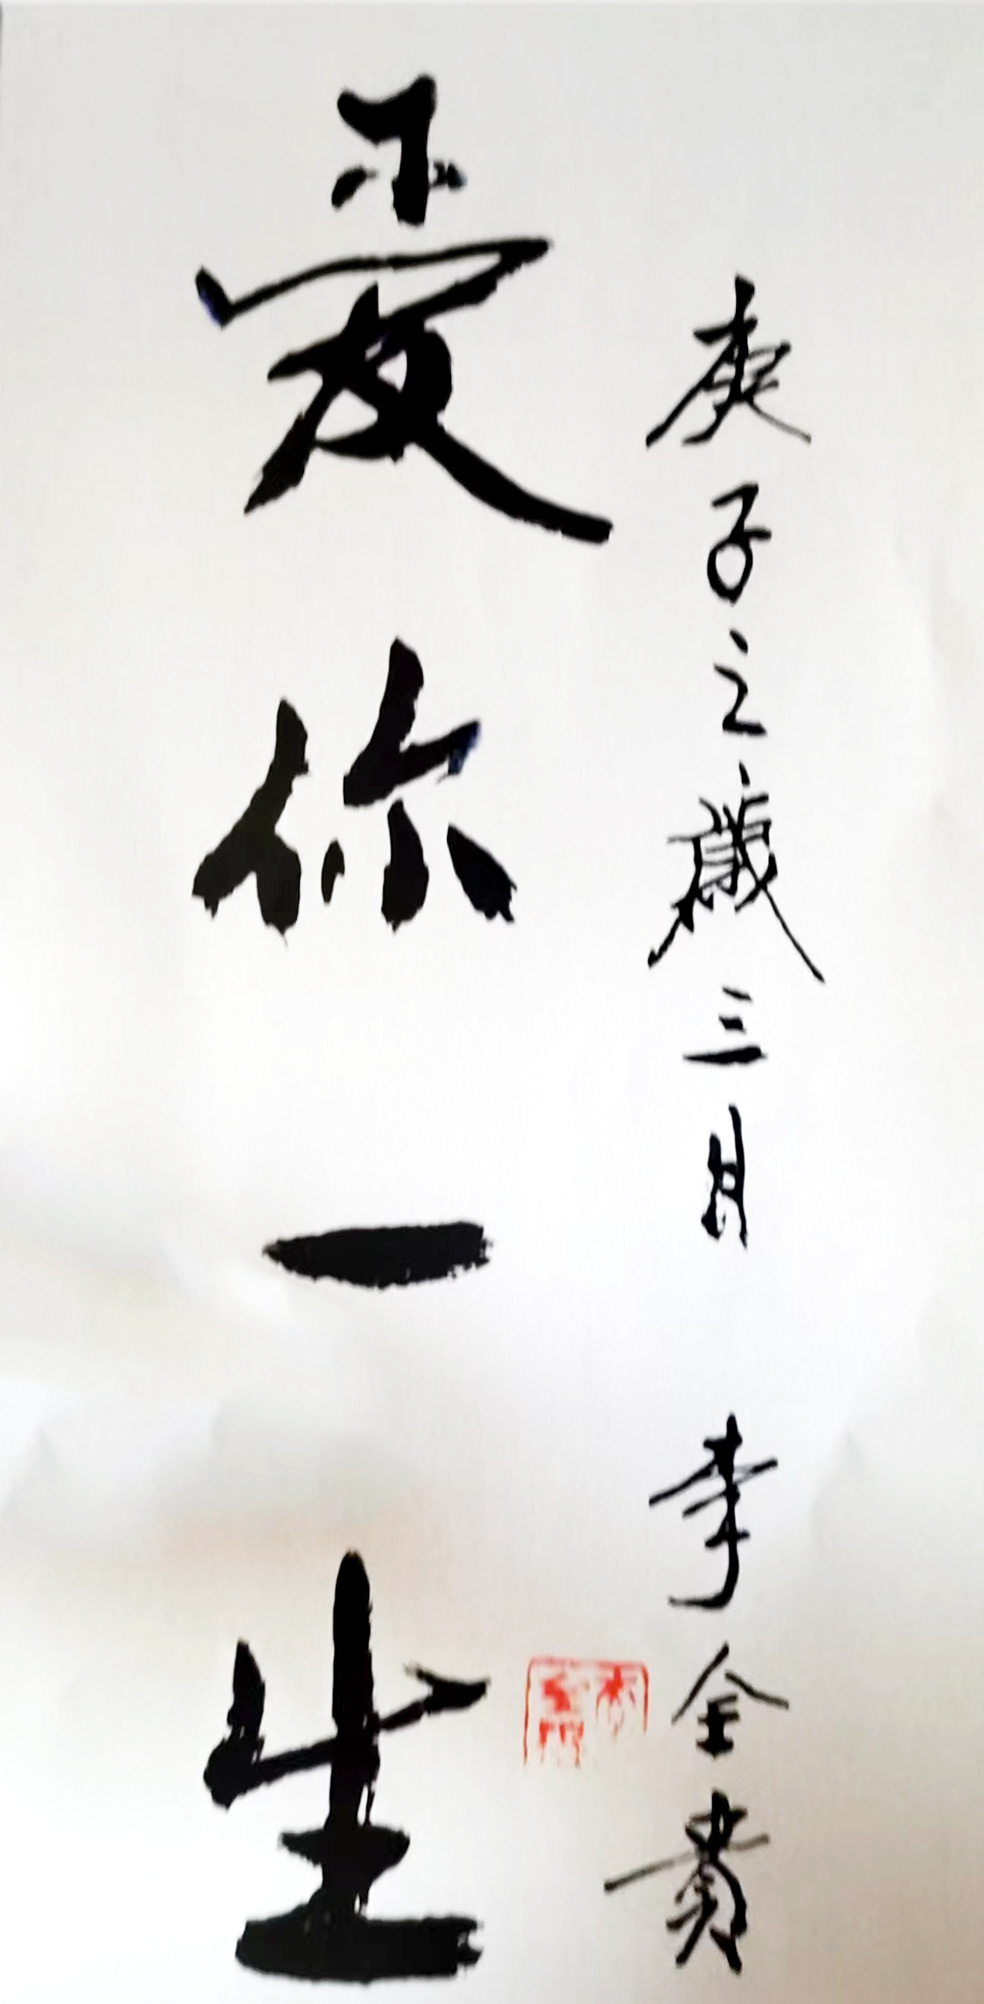 爱你一生
庚子之歲三月 李全貴